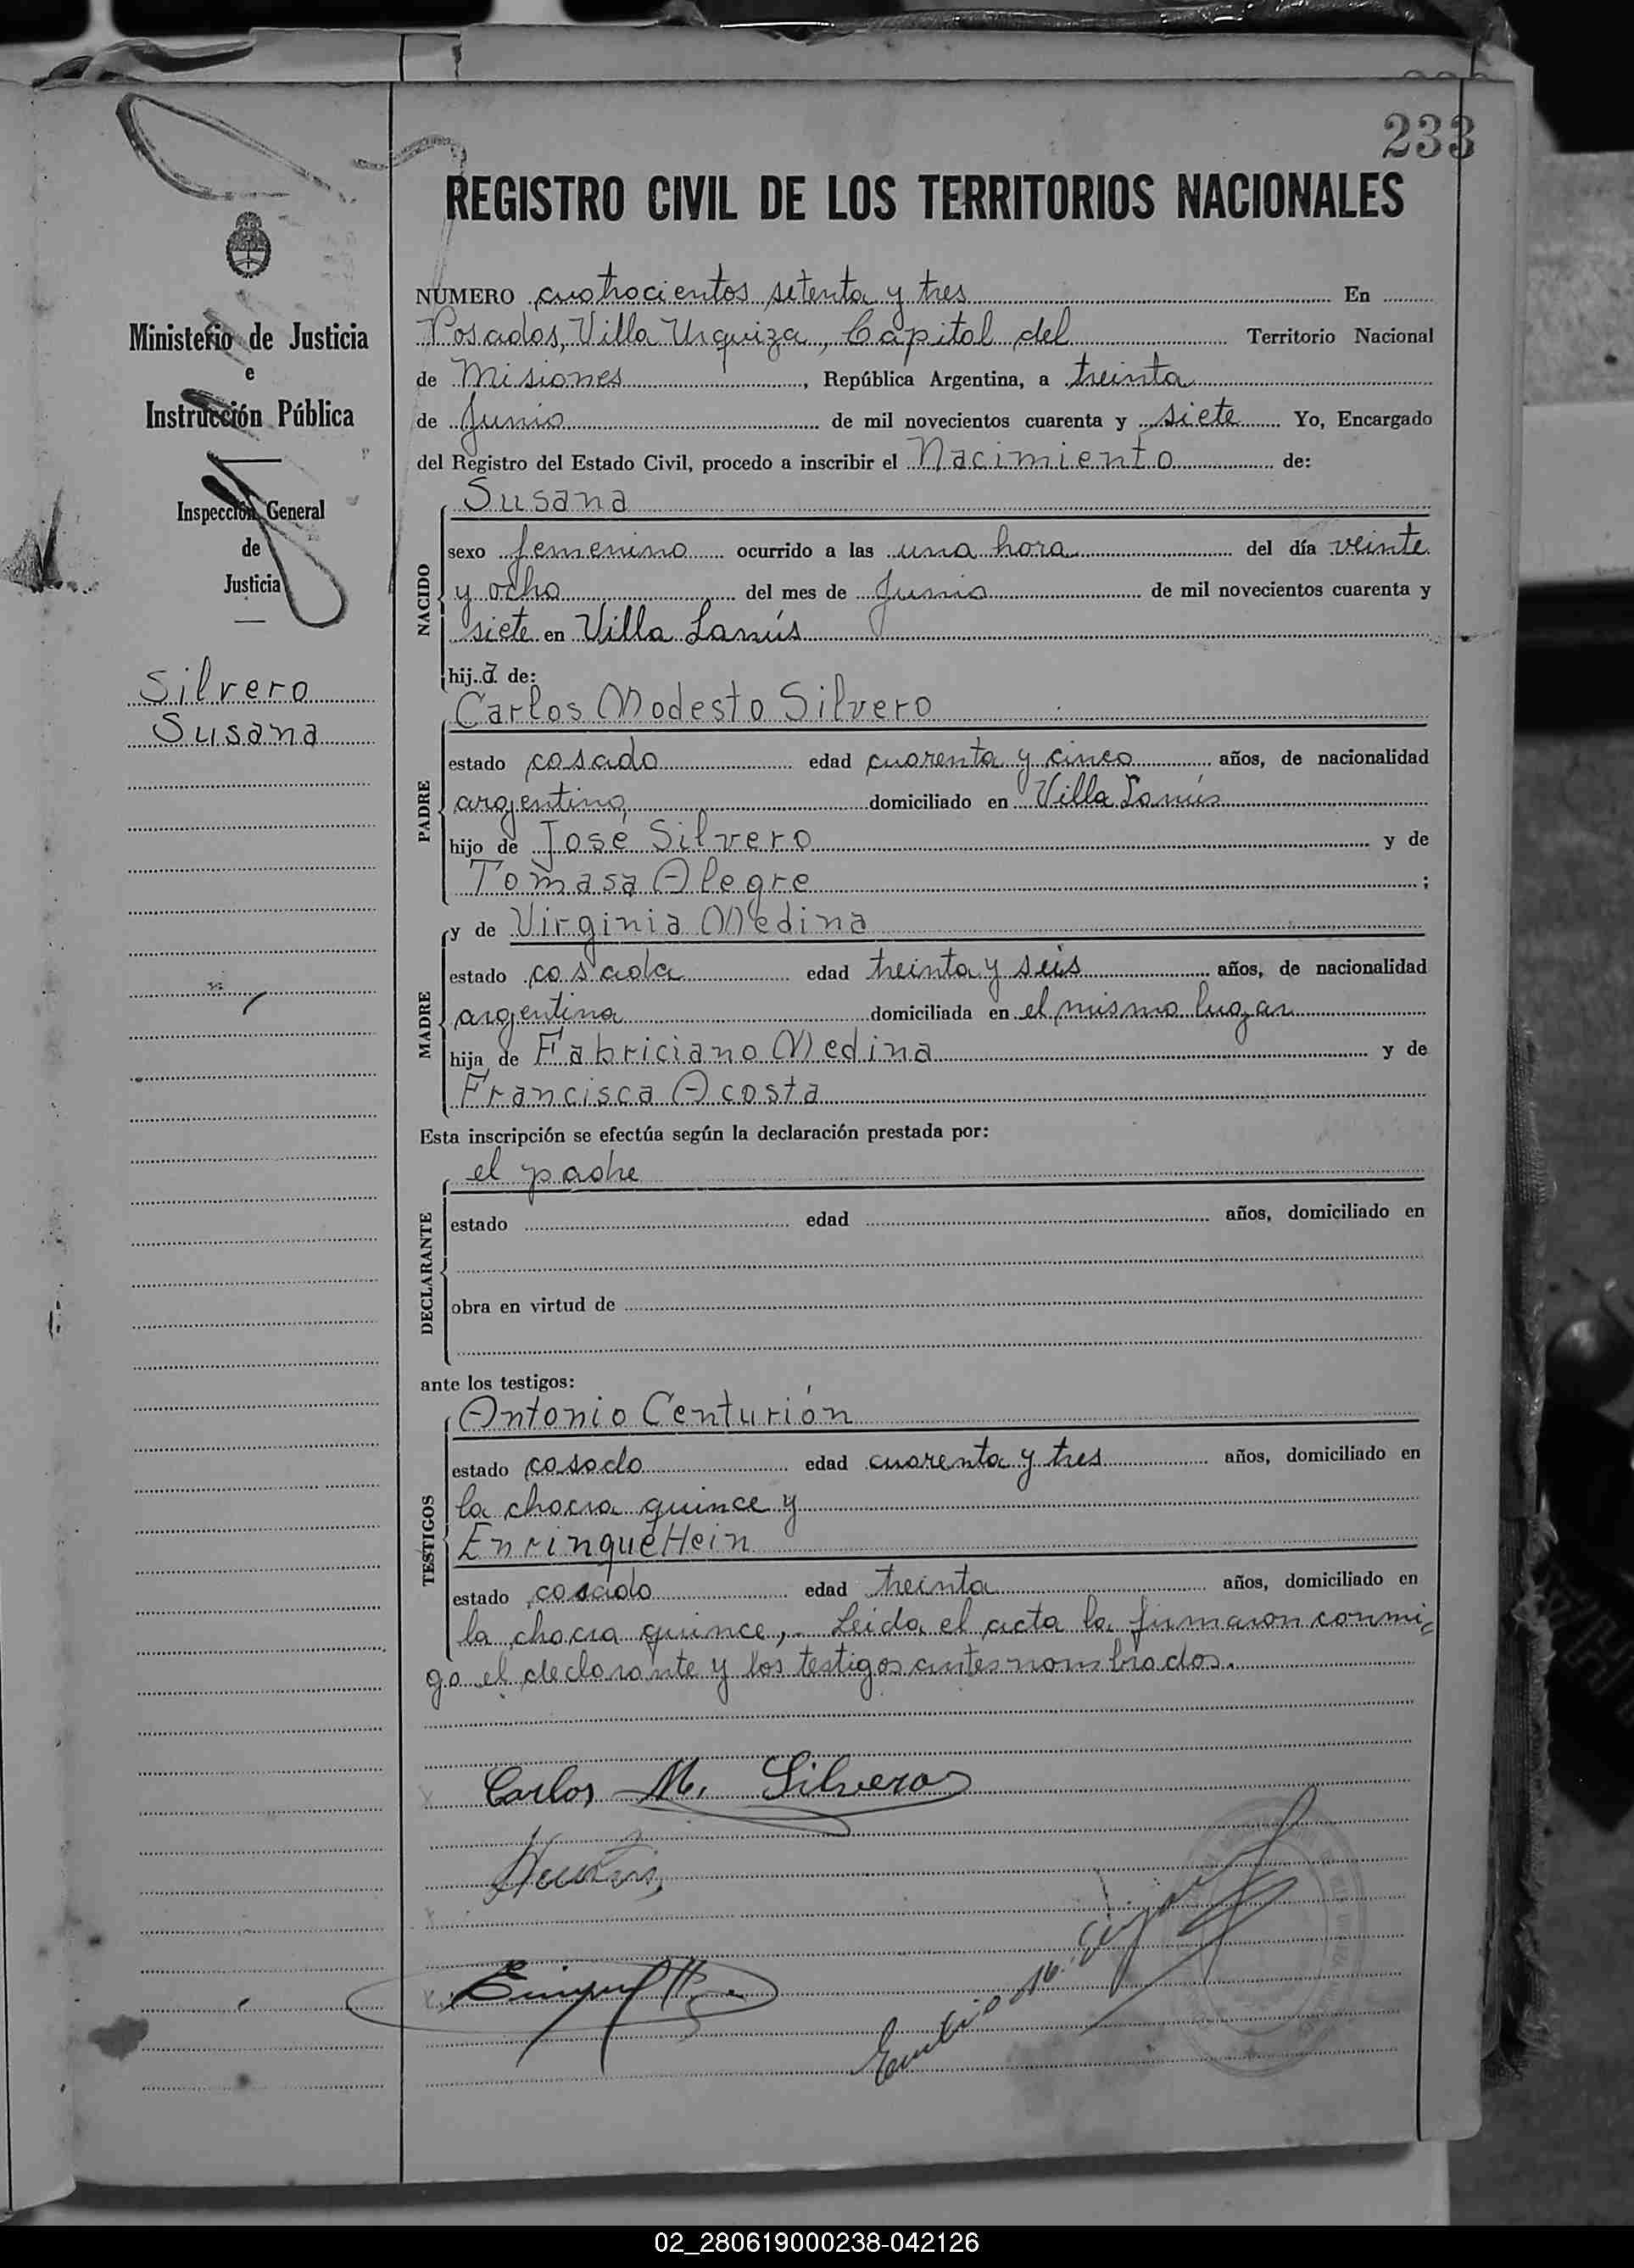 233
REGISTRO CIVIL DE LOS TERRITORIOS NACIONALES
Ministerio de Justicia
e
Instrucción Pública
Inspección General
de
Justicia
Silvero
Susana
NÚMERO cuatrocientos setenta y tres En
Posadas, Villa Urquiza, Capital del Territorio Nacional
de Misiones, República Argentina, a treinta
de Junio de mil novecientos cuarenta y siete Yo, Encargado
del Registro del Estado Civil, procedo a inscribir el Nacimiento de:
Susana
NACIDO
sexo femenino ocurrido a las una hora del día veinte
y ocho del mes de Junio de mil novecientos cuarenta y
siete en Villa Lanús
hija de:
Carlos Modesto Silvero
PADRE
estado casado edad cuarenta y cinco años, de nacionalidad
argentino, domiciliado en Villa Lanús
hijo de José Silvero y de
Tomasa Alegre ;
y de Virginia Medina
MADRE
estado casada edad treinta y seis años, de nacionalidad
argentina domiciliada en el mismo lugar
hija de Fabriciano Medina y de
Francisca Acosta
Esta inscripción se efectúa según la declaración prestada por:
el padre
DECLARANTE
estado edad años, domiciliado en
obra en virtud de
ante los testigos:
Antonio Centurión
TESTIGOS
estado casado edad cuarenta y tres años, domiciliado en
la chacra quince y
Enrinque Hein
estado casado edad treinta años, domiciliado en
la chacra quince,. Leida el acta la firmaron conmi=
go el declarante y los testigos antesnombrados.
Carlos M. Silvero
02_280619000238-042126